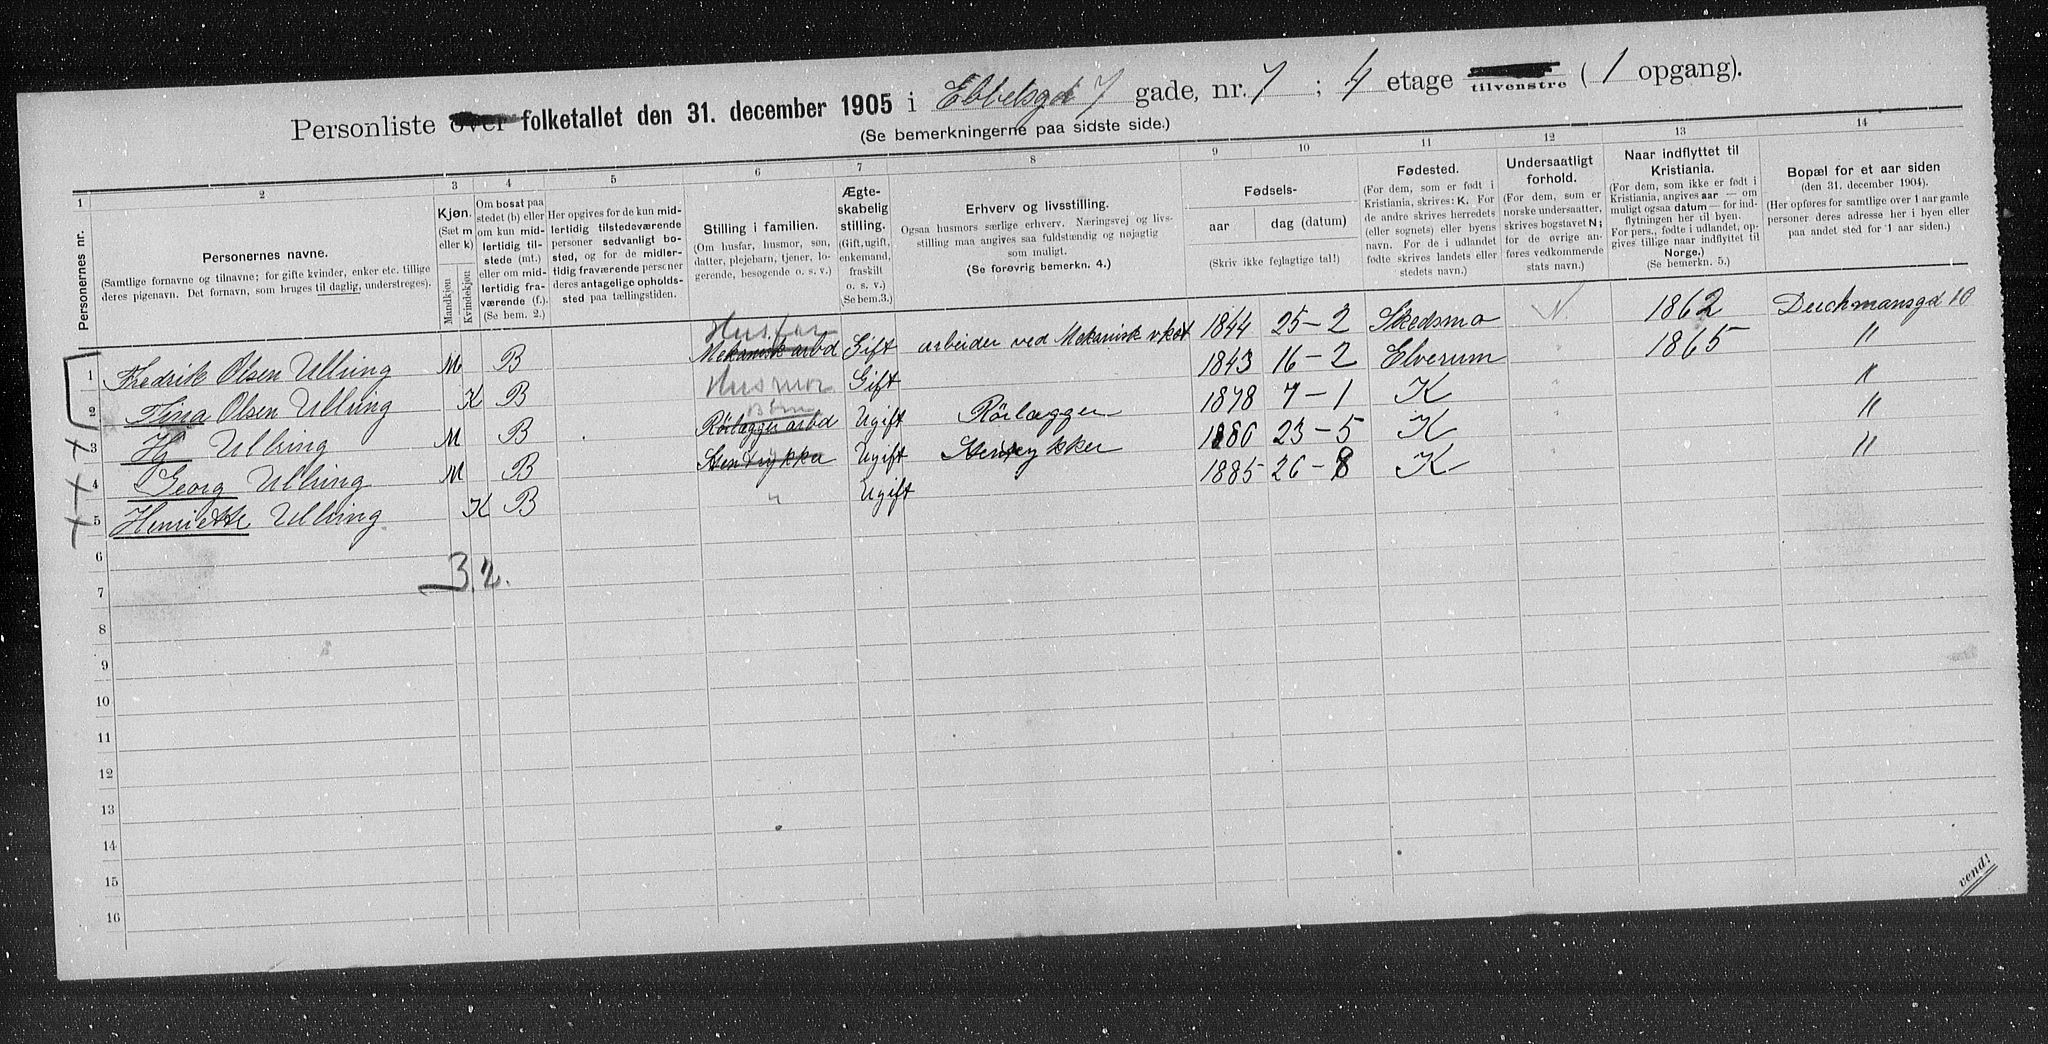 Personliste over folketallet den 31. december 1905 i Ebbelsgd 7 gade, nr. 7 ; 4 etage tilvenstre ( 1 opgang).
(Se bemerkningerne paa sidste side.)
1 2 3 4 5 6 7 8 9 10 11 12 13 14
Personernes nr.
Personernes navne.
(Samtlige fornavne og tilnavne; for gifte kvinder, enker etc. tillige
deres pigenavn. Det fornavn, som bruges til daglig, understreges).
Kjøn.
(Sæt m
eller k)
Mandkjøn
Kvindekjøn
Om bosat paa
stedet (b) eller
om kun mid-
lertidig til-
stede (mt.)
eller om mid-
lertidig fra-
værende (f.).
(Se bem. 2.)
Her opgives for de kun mid-
lertidig tilstedeværende
personer sedvanligt bo-
sted, og for de midler-
tidig fraværende personer
deres antagelige opholds-
sted paa tællingstiden.
Stilling i familien.
(Om husfar, husmor, søn,
datter, plejebarn, tjener, lo-
gerende, besøgende o. s. v.)
Ægte-
skabelig
stilling.
(Gift, ugift,
enkemand,
fraskilt
o. s. v.)
(Se bem. 3.)
Erhverv og livsstilling.
Ogsaa husmors særlige erhverv. Næringsvej og livs-
stilling maa angives saa fuldstændig og nøjagtig
som muligt.
(Se forøvrig bemerkn. 4.)
Fødsels-
aar
dag (datum)
(Skriv ikke fejlagtige tal!)
Fødested.
(For dem, som er født i
Kristiania, skrives: K. For
de andre skrives herredets
(eller sognets) eller byens
navn. For de i udlandet
fødte skrives landets eller
stedets navn.)
Undersaatligt
forhold.
(For dem, som er
norske undersaatter,
skrives bogstavet N;
for de øvrige an-
føres vedkommende
stats navn.)
Naar indflyttet til
Kristiania.
(For dem, som ikke er født i
Kristiania, angives aar — om
muligt ogsaa datum — for ind-
flytningen her til byen.
For pers., fødte i udlandet, op-
gives tillige naar indflyttet til
Norge.)
(Se bemerkn. 5.)
Bopæl for et aar siden
(den 31. december 1904).
(Her opføres for samtlige over 1 aar gamle
personer deres adresse her i byen eller
paa andet sted for 1 aar siden.)
1 Fredrik Olsen Ullring M B Husfar Mekanisk arbd Gift arbeider ved Mekanisk vkst 1844 25-2 Skedsmo N 1862 Deichmansgd 10
2 Tina Olsen Ullring K B Husmor Gift 1843 16-2 Elverum " 1865 "
3 Hj Ullring M B Rörlægger arbd Ugift Rörlægger 1878 7-1 K " "
4 Georg Ullring M B Stentrykker Ugift Stentrykker 1880 23-5 K " "
5 Henriette Ullring K B " Ugift 1885 26-8 K " "
3 2.
6
7
8
9
10
11
12
13
14
15
16
vend!